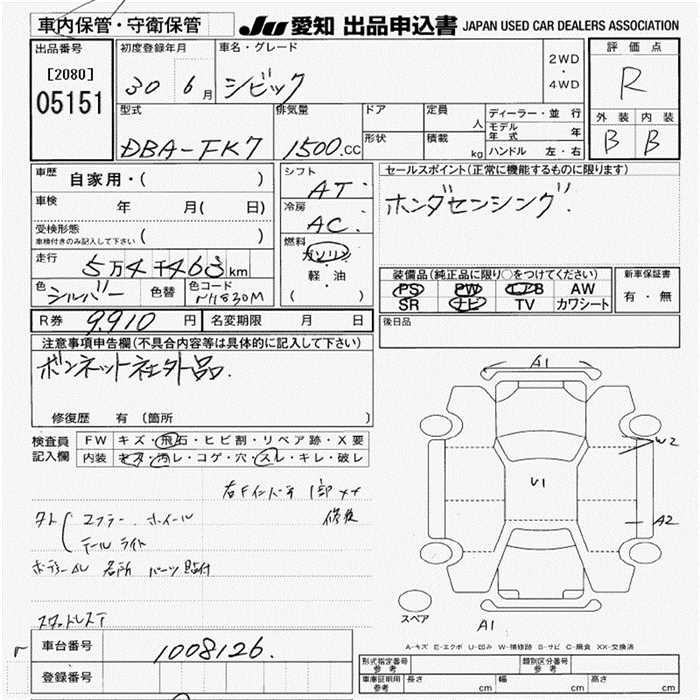 車内保管・守衛保管
JU 愛知 出品申込書 JAPAN USED CAR DEALERS ASSOCIATION
出品番号
[2080]
05151
初度登録年月
30 6月
車名・グレード
シビック
2WD
・
4WD
評価点
R
外装 内装
B B
型式
DBA-FK7
排気量
1500.CC
ドア
形状
定員
人
積載
kg
ディーラー・並行
モデル年式 年
ハンドル 左・右
車歴 自家用・( )
車検 年 月( 日)
受検形態
車検付きのみ記入して下さい ( )
走行 5万4千463km
色 シルバー 色替 色コード NH830M
シフト
AT
冷房
AC
燃料
ガソリン
軽・油
( )
セールスポイント(正常に機能するものに限ります)
ホンダセンシング
装備品(純正品に限り○をつけてください)
PS PW エアB AW
SR ナビ TV カワシート
新車保証書
有・無
後日品
R券 9,910円 名変期限 月 日
注意事項申告欄(不具合内容等は具体的に記入して下さい)
ボンネット社外品.
修復歴 有(箇所 )
検査員
記入欄
FW キズ・飛石・ヒビ割・リペア跡・X要
内装 キズ・汚レ・コゲ・穴・スレ・キレ・破レ
右Fインパネ 1部 XX
修復
タト エアラー ホイール
テールライト
名所 パーツ貼付
スタットレス
A1
W2
U1
A2
A1
スペア
A-キズ E-エクボ U-凹み W-補修跡 S-サビ C-腐食 XX-交換済
車台番号 1008126.
登録番号
型式指定番号
参考
類別区分番号
参考
車庫証明用
参考
長さ cm 幅 cm 高さ cm